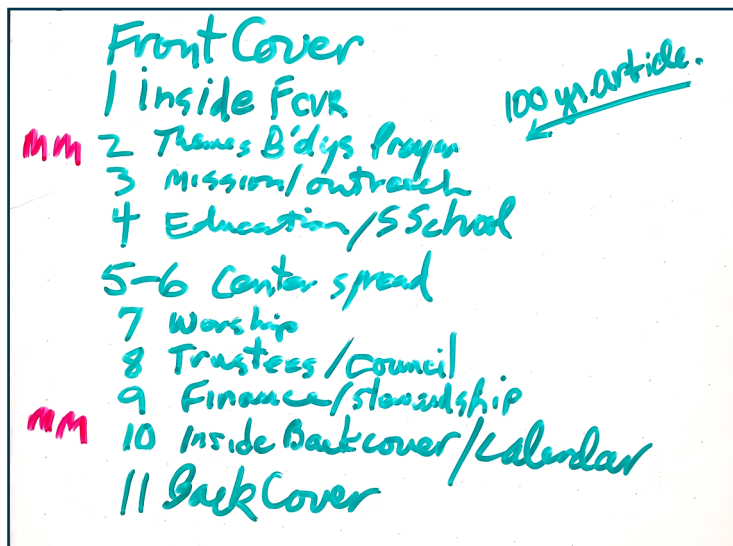 Front Cover
1 inside Fcvr
100 yr. article.
MM 2 Themes B'dys Prayer
3 Mission/outreach
4 Education/SSchool
5-6 Center spread
7 Worship
8 Trustees/Council
9 Finance/stewardship
MM 10 Inside Backcover/Calendar
11 Back Cover